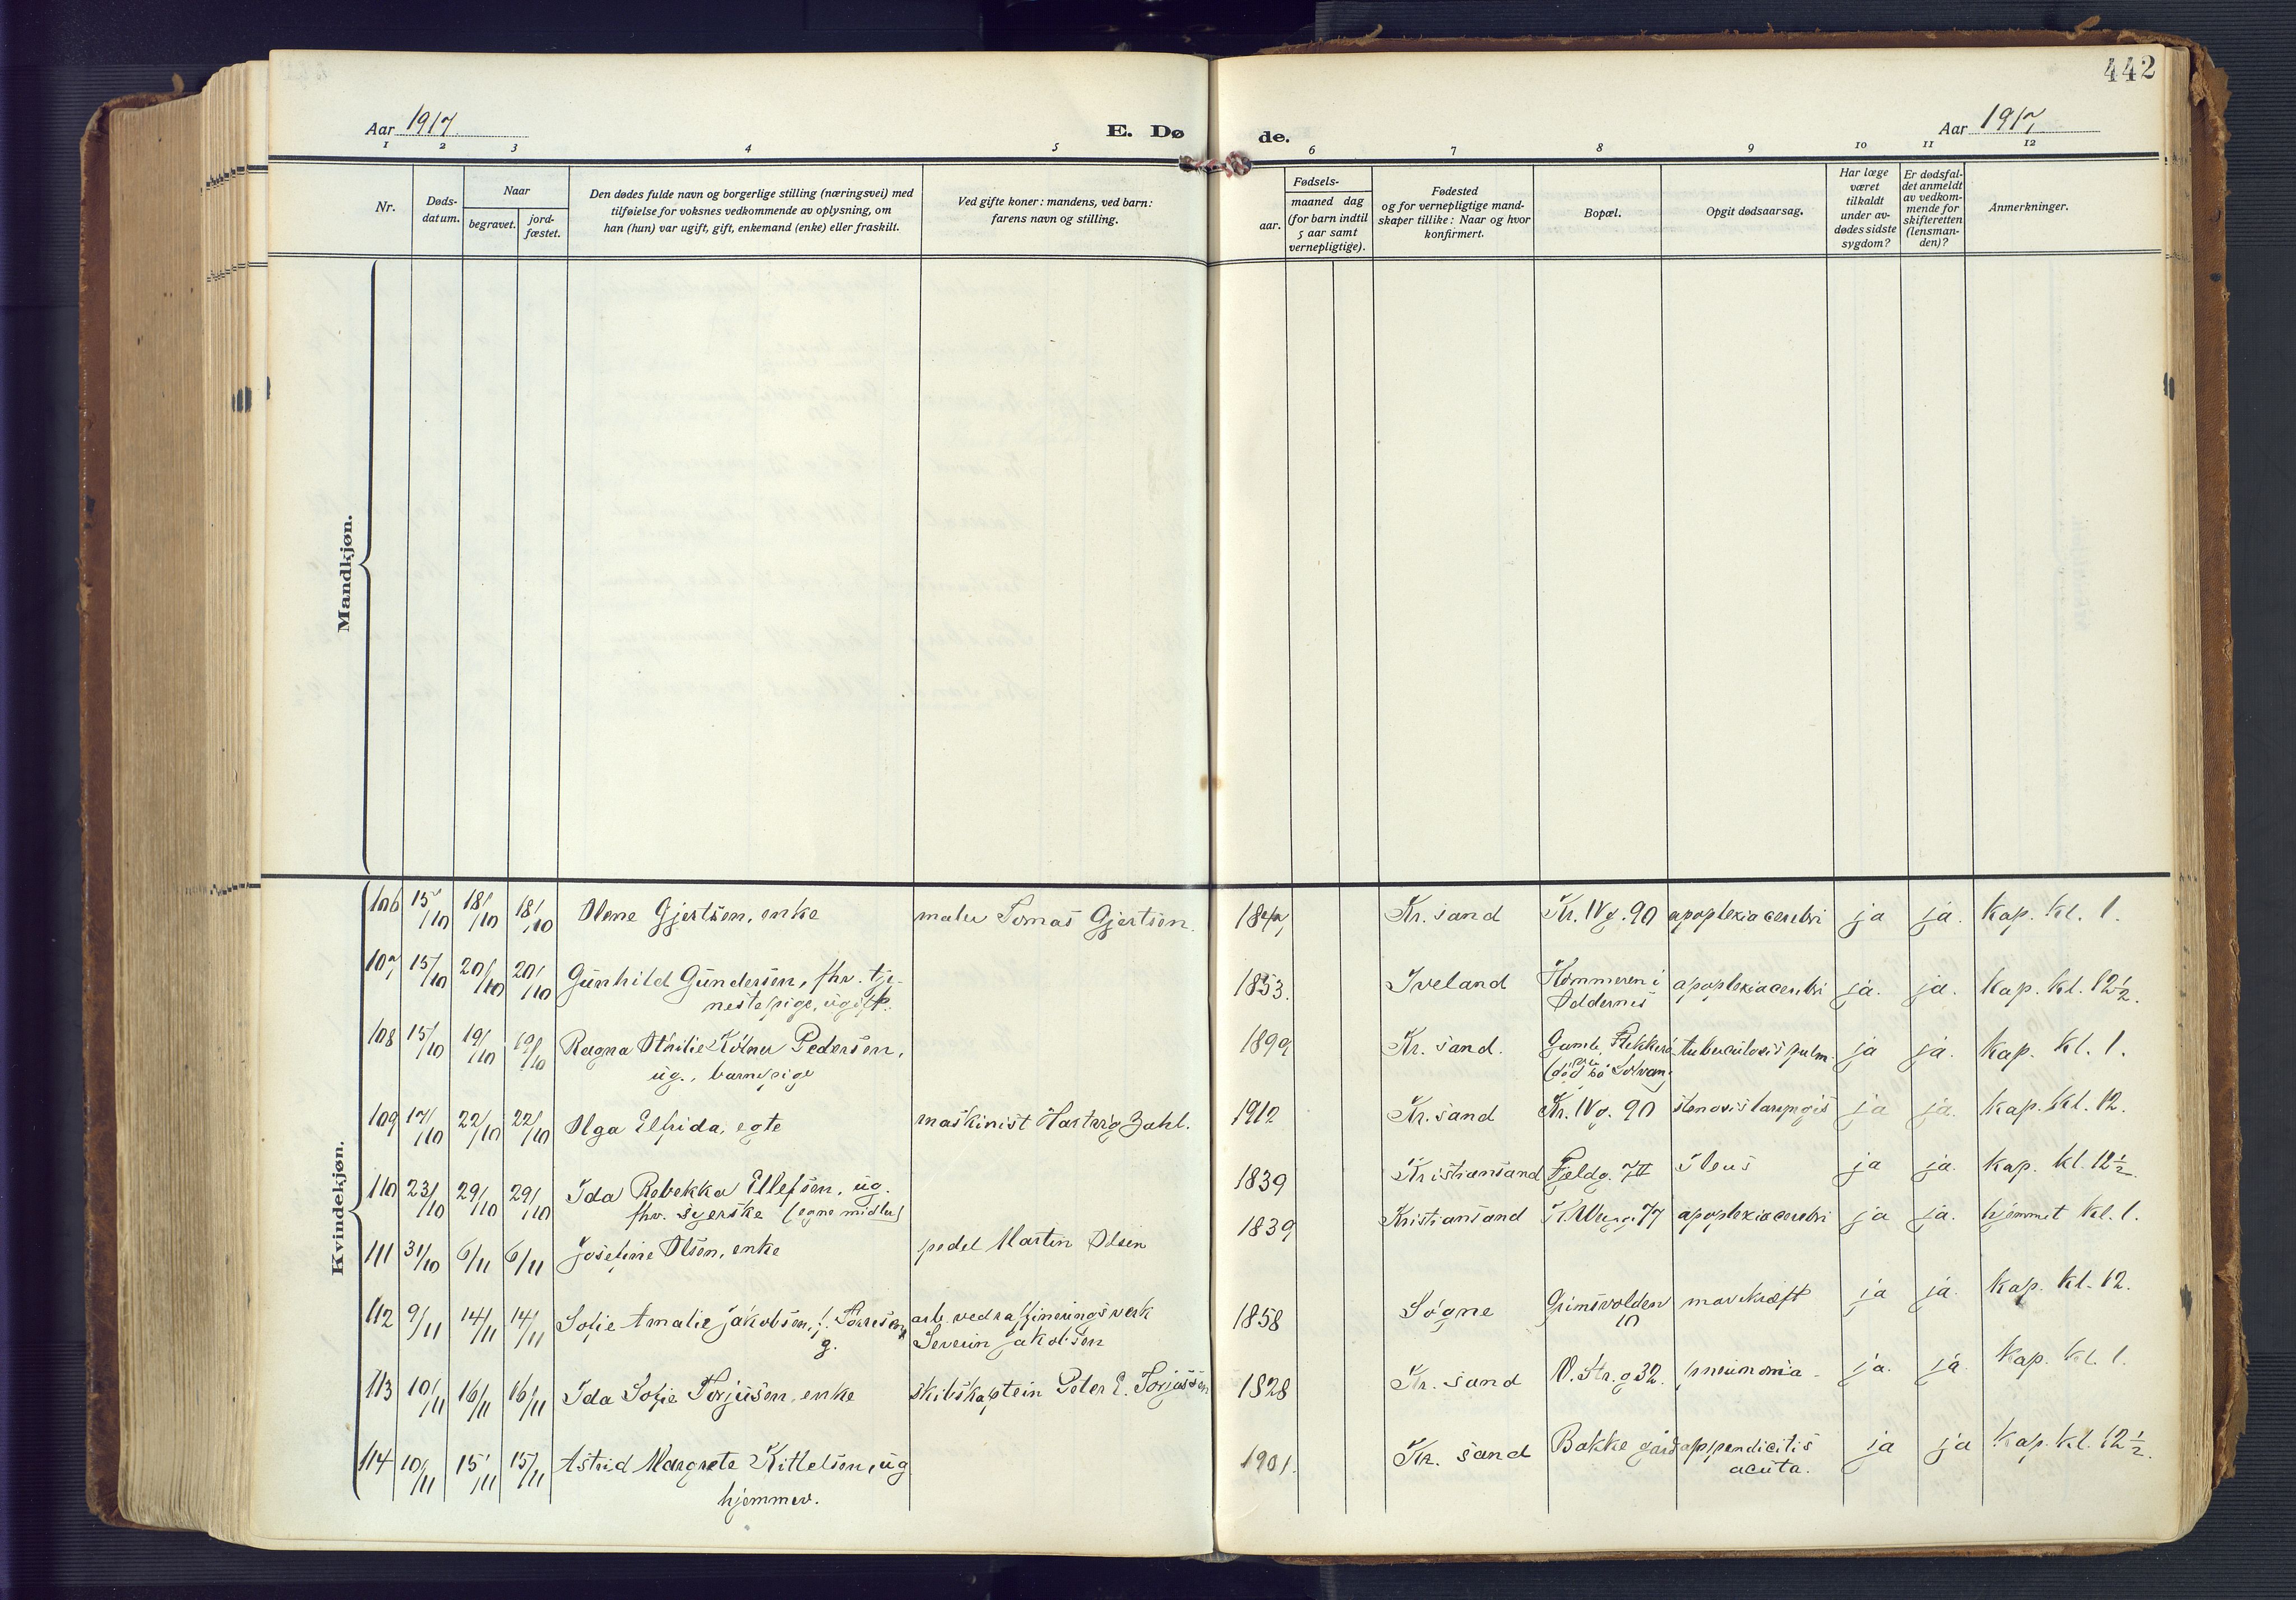 442
Aar 1917
E. Dø de.
Aar 1917
1 2 3 4 5 6 7 8 9 10 11 12
Nr.
Døds-
datum.
Naar
begravet.
jord-
fæstet.
Den dødes fulde navn og borgerlige stilling (næringsvei) med
tilføielse for voksnes vedkommende av oplysning, om
han (hun) var ugift, gift, enkemand (enke) eller fraskilt.
Ved gifte koner: mandens, ved barn:
farens navn og stilling.
Fødsels-
aar.
maaned dag
(for barn indtil
5 aar samt
vernepligtige).
Fødested
og for vernepligtige mand-
skaper tillike: Naar og hvor
konfirmert.
Bopæl.
Opgit dødsaarsag.
Har læge
været
tilkaldt
under av-
dødes sidste
sygdom?
Er dødsfal-
det anmeldt
av vedkom-
mende for
skifteretten
(lensman-
den)?
Anmerkninger.
Mandkjøn.
Kvindekjøn.
106 15/10 18/10 18/10 Olene Gjertsen, enke maler Tomas Gjertsen. Kr.sand Kr. IV g. 90 apoplexia cerebri ja ja. Kap. kl. 1.
107 15/10 20/10 20/10 Gunhild Gundersen, fhv. tje- 1853. Iveland Hommeren i apoplexia cerebri ja. ja. Kap. kl. 12½.
nestepige, ugift. Oddernes
108 15/10 19/10 19/10 Ragna Othilie Pedersen, 1899 Kr. sand. Gamle Flekkerö tuberculosis pulm. ja ja. Kap. kl. 1.
ug., barnepige (død på Solvang)
109 17/10 22/10 22/10 Olga Elfrida, egte maskinist Hartvig Zahl. 1912 Kr. sand Kr. IV g. 90 stenosis laryngis ja ja. Kap. kl. 12.
110 23/10 29/10 29/10 Ida Rebekka Ellefsen, ug. 1839 Kristiansand Fjeldg. Ileus ja ja. Kap. kl. 12½.
fhv. syerske (egne midler)
111 31/10 6/11 6/11 Josefine Olsen, enke pedel Martin Olsen 1839 Kristiansand 77 apoplexia cerebri ja ja. hjemmet kl. 1.
112 9/11 14/11 14/11 Sofie Amalie Jakobsen, f. Torresen, arb. ved raffineringsverk 1858 Søgne Grimsvolden mavekræft ja ja. Kap. kl. 12.
g. Severin Jakobsen 10
113 10/11 16/11 16/11 Ida Sofie Torjusen, enke skibskaptein Peter E. Torjussen 1828 Kr. sand V. Str. g 32. pneumonia. ja. ja Kap. kl. 1.
114 10/11 15/11 15/11 Astrid Margrete Kittelsen, ug 1901. Kr. sand Bakke gård appendicitis ja ja Kap. kl. 12½.
hjemmev. acuta.